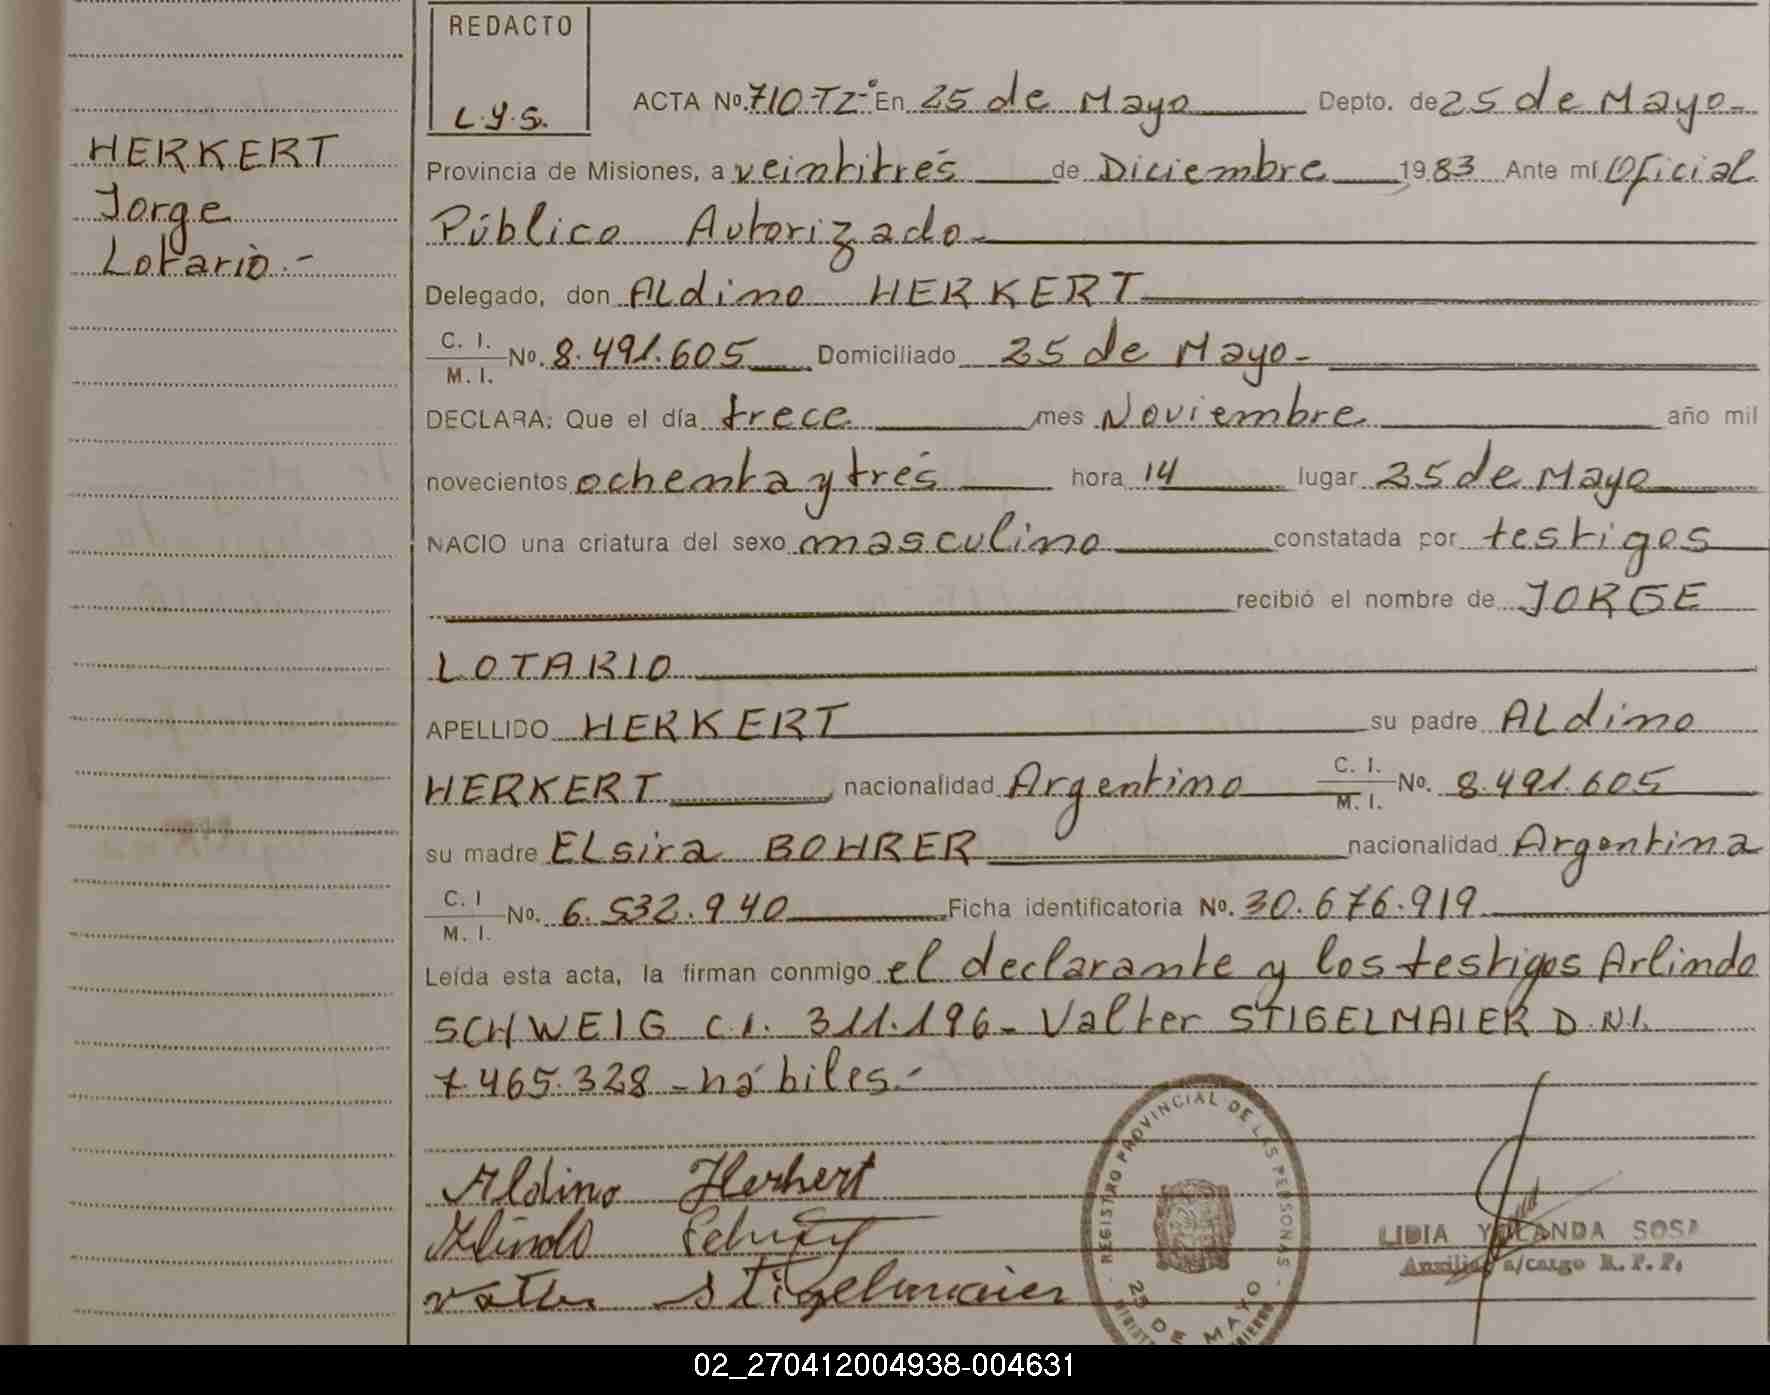 REDACTO
L.Y.S.
HERKERT
Jorge
Lotario.-
ACTA Nº 710-Tz-º En 25 de Mayo Depto. de 25 de Mayo-
Provincia de Misiones, a veintitrés de Diciembre 1983 Ante mí Oficial
Público Autorizado-
Delegado, don ALdino HERKERT
C. I.
M. I.
Nº. 8.491.605 Domiciliado 25 de Mayo-
DECLARA: Que el día trece mes Noviembre año mil
novecientos ochenta y trés hora 14 lugar 25 de Mayo
NACIO una criatura del sexo masculino constatada por testigos
recibió el nombre de JORGE
LOTARIO
APELLIDO HERKERT su padre ALdino
HERKERT nacionalidad Argentino C. I.
M. I.
No. 8.491.605
su madre ELsira BOHRER nacionalidad Argentina
C. I
M. I.
No. 6.532.940 Ficha identificatoria No. 30.676.919
Leída esta acta, la firman conmigo el declarante y los testigos Arlindo
SCHWEIG C.I. 311.196- Valter STIGELMAIER D.N.I.
7.465.328 - hábiles.-
Aldino Herkert
Arlindo Schweig
Valter Stigelmaier
REGISTRO PROVINCIAL DE LAS PERSONAS
25 DE MAYO
LIDIA YOLANDA SOSA
Auxiliar a/cargo R. P. P.
02_270412004938-004631